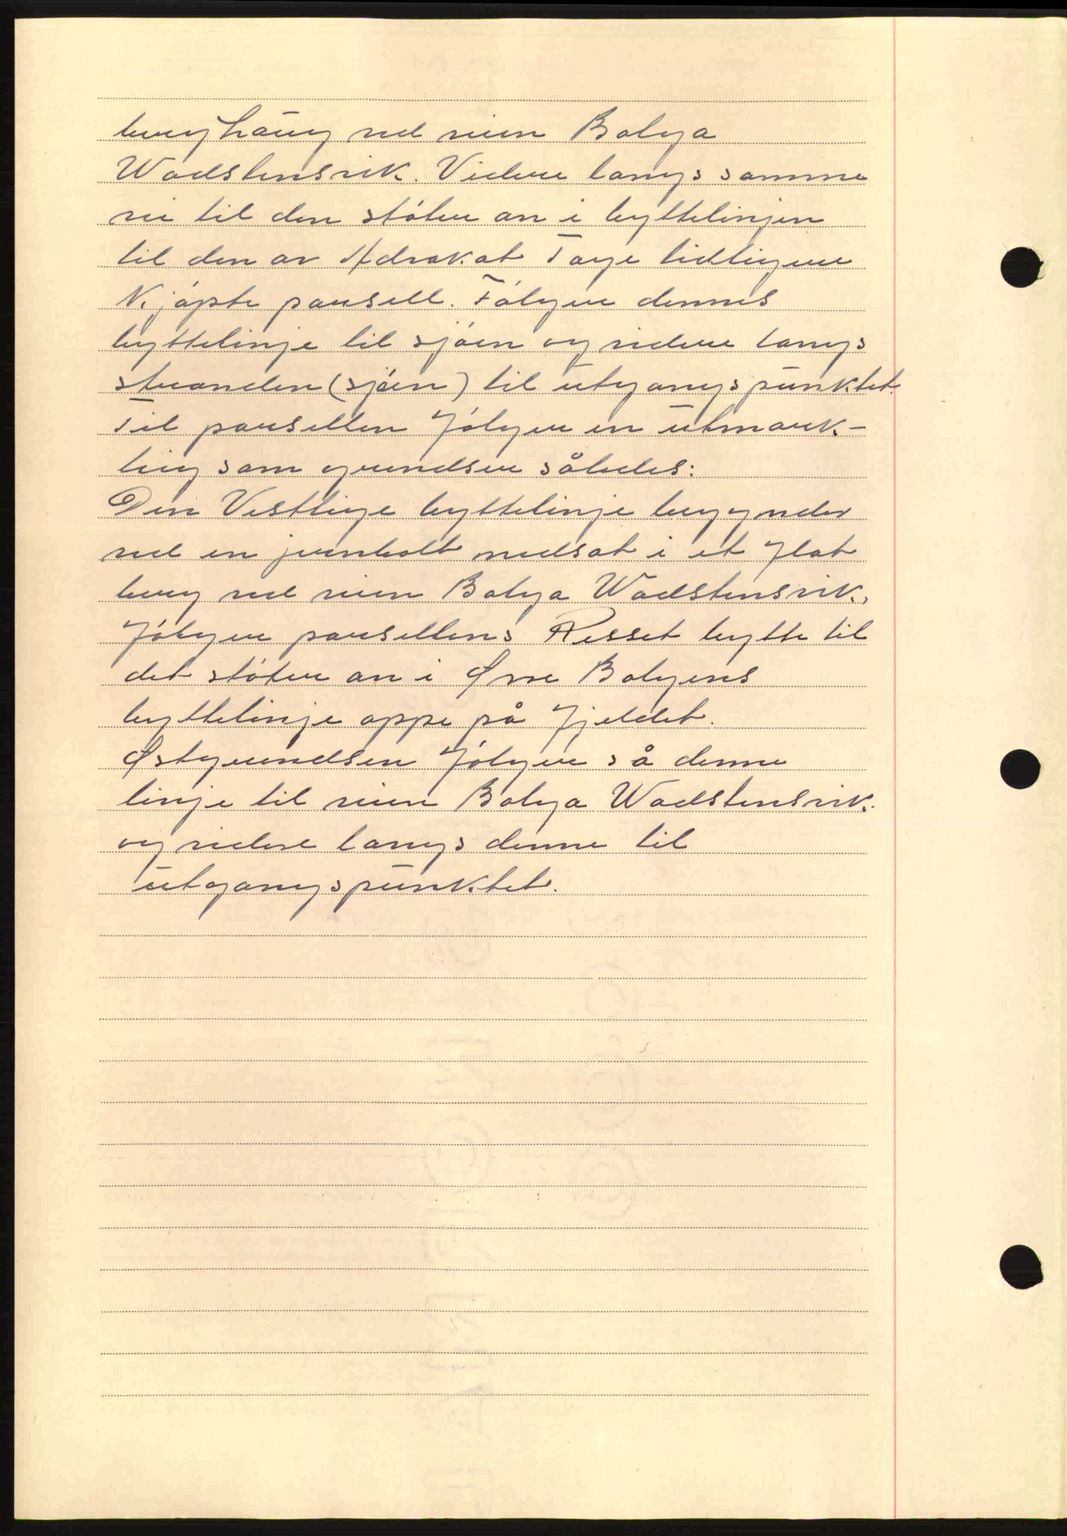 berghaug ved veien Bolga
Wadstensvik. Videre langs samme
vei til den støter an i byttelinjen
til den av Advokat Tage tidligere
Kjøpte parsell. Følger dennes
byttelinje til sjøen og videre langs
stranden (sjøen) til utgangspunktet.
Til parsellen følger en utmark-
teig som grendser således:
Den Vestlige byttelinje begynder
ved en jernbolt nedsat i et flat
berg ved veien Bolga Wadstensvik,
følger parsellens Resset bytte til
det støter an i Øvre Bolgens
byttelinje oppe på fjeldet.
Østgrendsen følger så denne
linje til veien Bolga Wadstensvik.
og videre langs denne til
utgangspunktet.